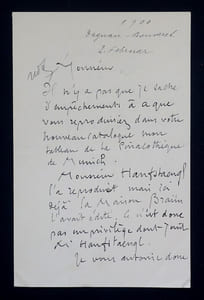 1900
Dagnan-Bouveret
2. Februar
Monsieur
Il n'y a pas que je sache
d'empêchements à ce que
vous reproduisiez dans votre
nouveau catalogue mon
tableau de la Pinacothèque
de Munich.
Monsieur Hanfstaengl
l'a reproduit mais ici
déjà la Maison Braun
l'avait édité. Ce n'est donc
pas un privilège dont jouit
Mr Hanfstaengl.
Je vous autorise donc